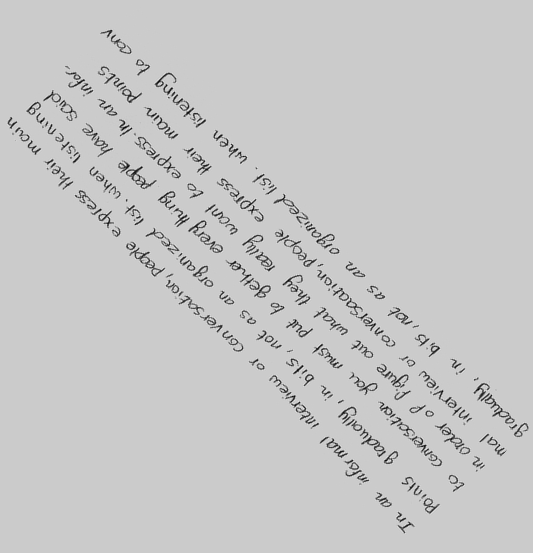 In an informal interview or conversation, people express their main
points gradually, in bits, not as an organized list. when listening
to conversation you must put to gether every thing people have said
in order of figure out what they really want to express. In an infor-
mal interview or conversaation, people express their main points
gradually, in bits, not as an organized list. when listening to conv